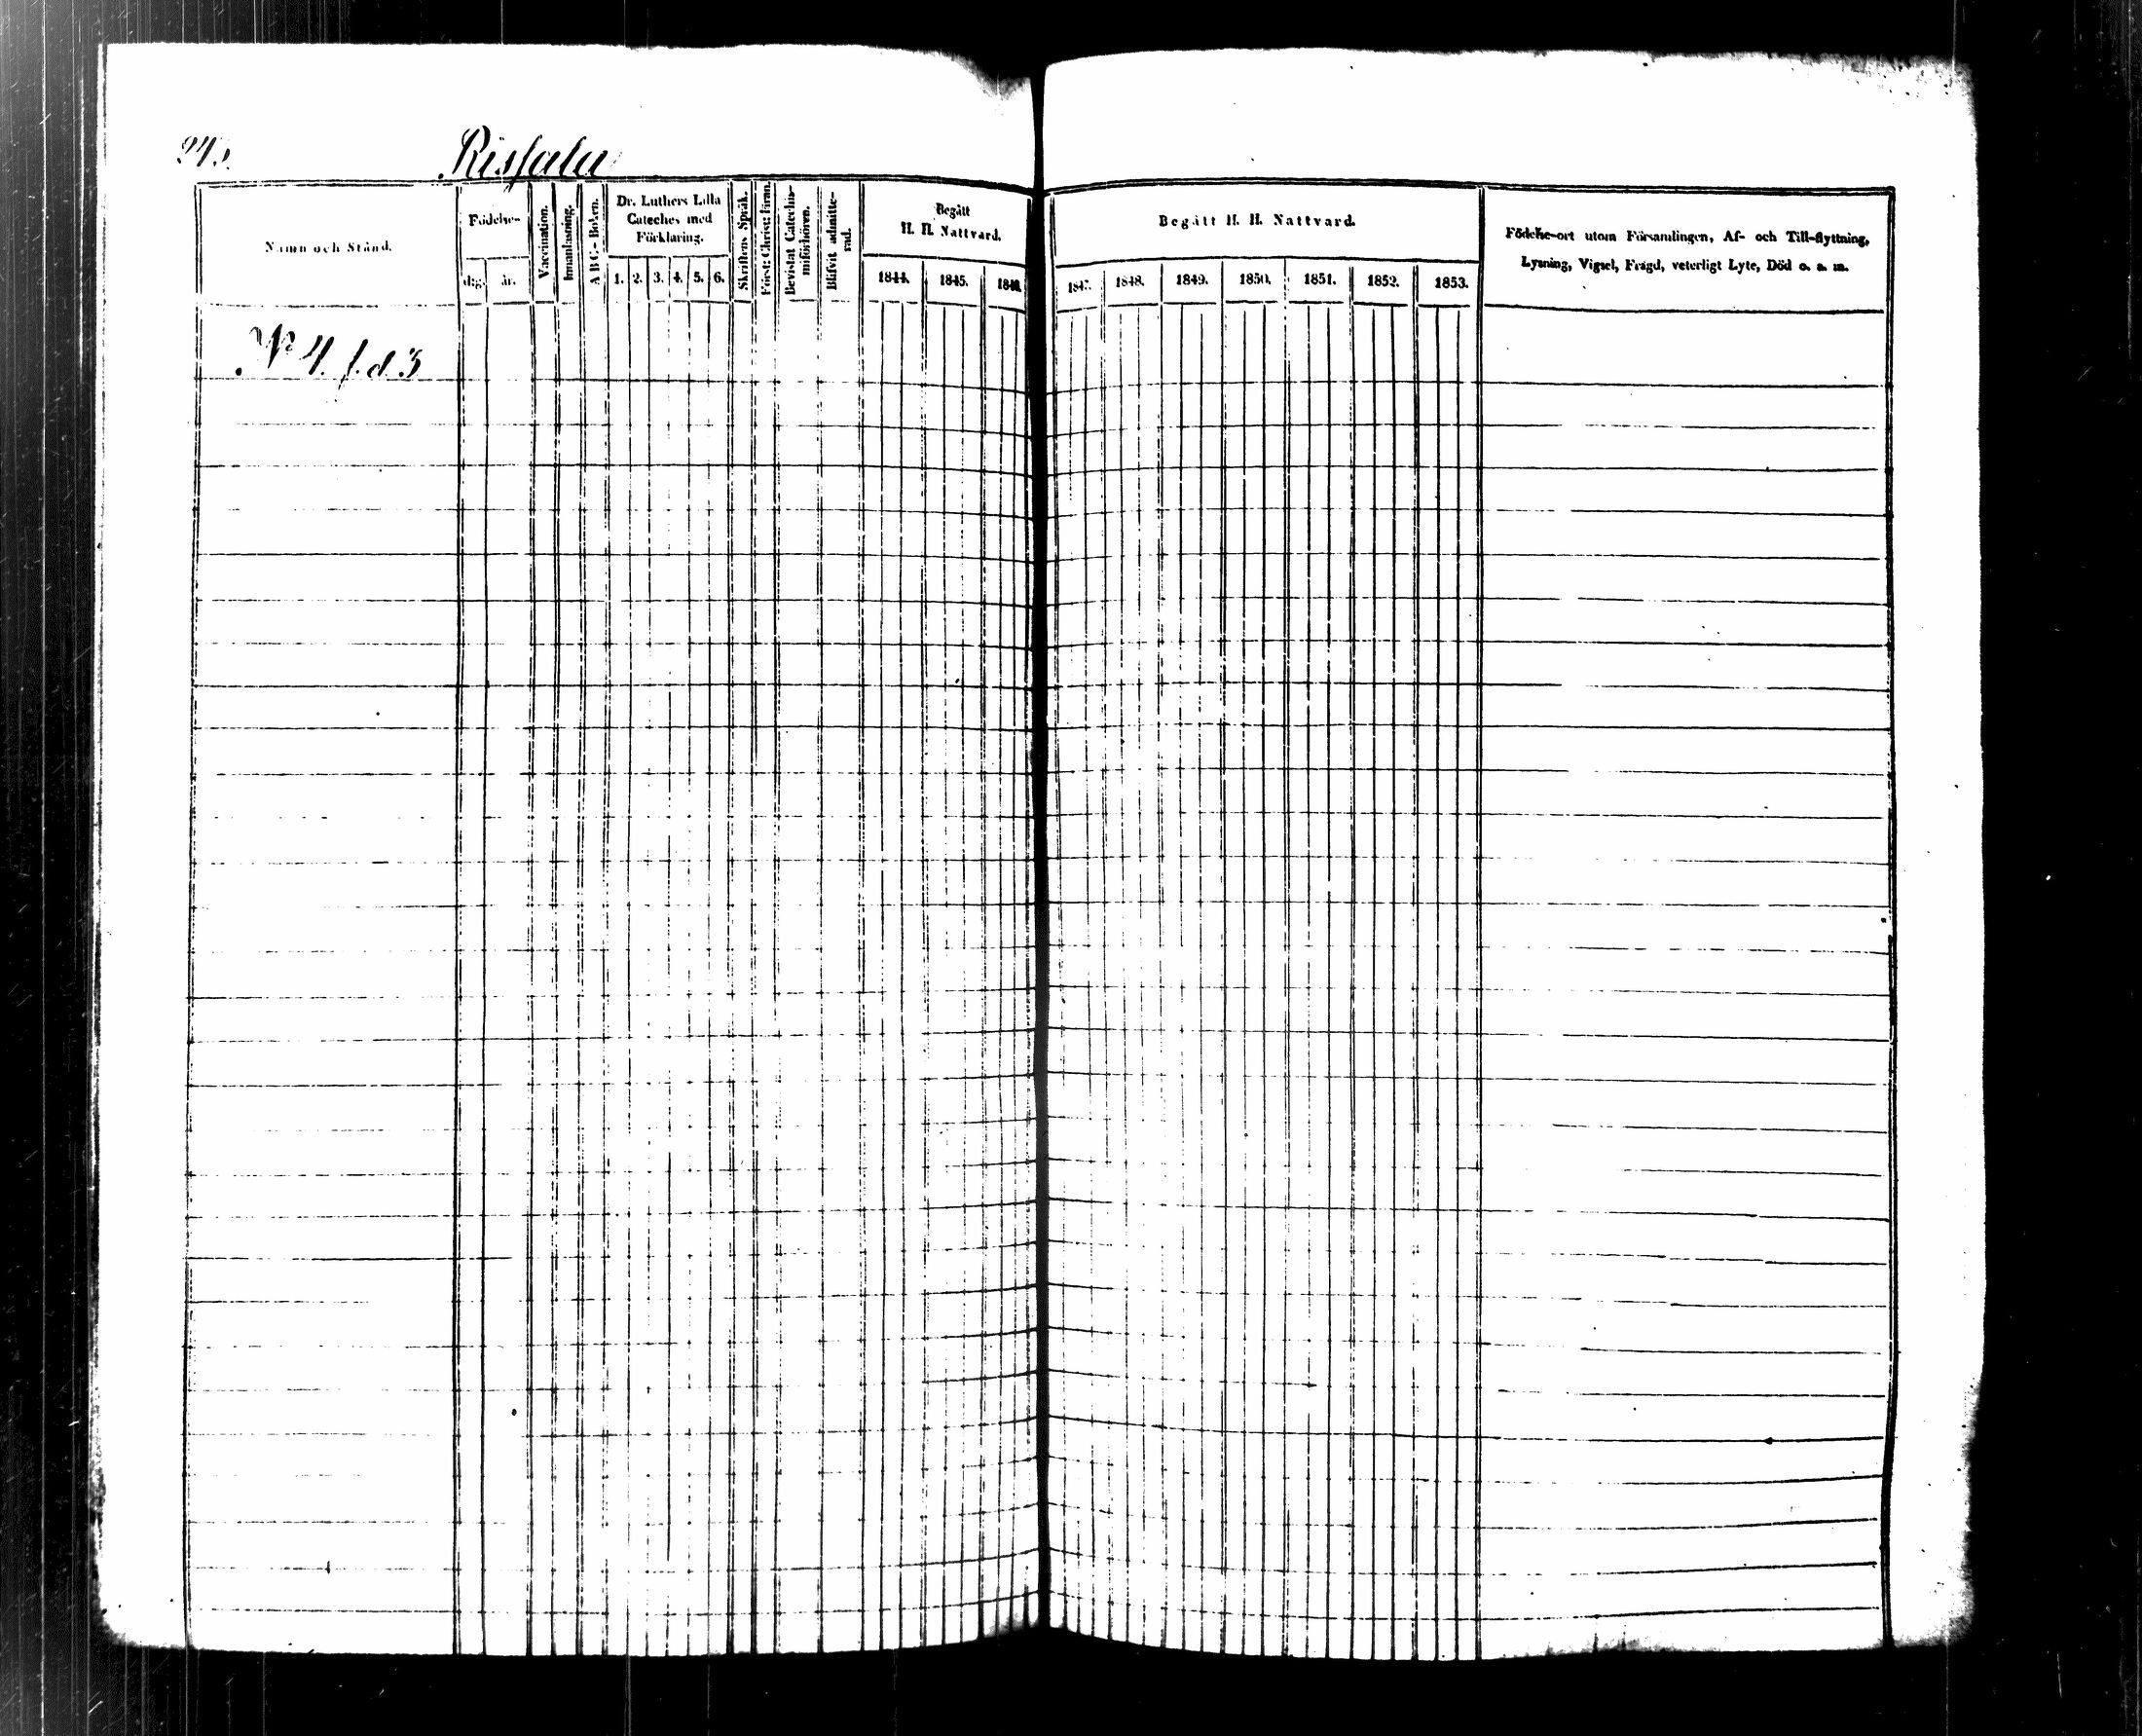 243.
Rissala
Namn och Stånd.
Födelse-
dag.
år.
Vaccination.
Innanläsning.
A B C - Boken.
Dr. Luthers Lilla
Cateches med
Förklaring.
1. 2. 3. 4. 5. 6.
Skriftens Språk.
Först: Christ: Fran.
Bevistat Catechis-
miförhören.
Blifvit admitte-
rad.
Begått
H. H. Nattvard.
1844. 1845. 1846.
Begått H. H. Nattvard.
1847. 1848. 1849. 1850. 1851. 1852. 1853.
Födelse-ort utom Församlingen, Af- och Till-flyttning,
Lysning, Vigsel, Frägd, veterligt Lyte, Död o. s. m.
No 4. f.d 3